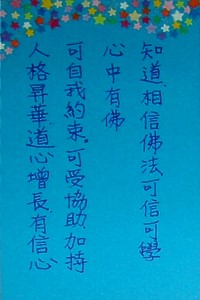 知道、相信佛法可信可學
心中有佛
可自我約束。可受協助、加持
人格昇華、道心增長、有信心